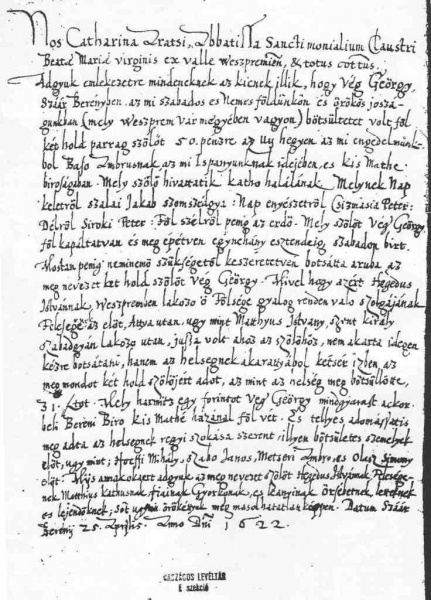 Nos Catharina Zratsi, Abbatissa Sanctimonialium Claustri
Beatæ Mariæ virginis ex valle Weszpremien, & totus cottus.
Adgyuk emlekezetre mindeneknek az kienek illik, hogy Vég György,
Szaár Berényben, az mi szabados es Nemes földunkön es örökös josza-
gunkban (mely Weszprem Vármegyében vagyon) bötsültetet volt föl
két hold parrag szölöt 50. penzre az Uy hegyen az mi engedelmünk-
böl Baso Ambrusnak, az mi Ispanyunknak idejeben, es kis Mathe
birosagaban. Mely szölö hivattatik katso halálának. Melynek Nap
keletröl szalai Jakab szomszedgya: Nap enyeszetröl Csizmasia Peter:
Delröl Siroki Peter: Föl szélröl penig az erdö. Mely szölöt Vég György
föl kapáltatvan es meg épétven egynehány esztendeig szabadon birt.
Mostan penig neminemö szükségetöl keszeretetven botsátta aruba az
meg nevezet ket hold szölöt Vég György. Mivel hogy azért Hegedus
Istvannak, Weszpremben lakozo ö Fölsége gyalog renden valo szolgájának
Felesége az elöt, Attya utan, ugy mint Mathyus Istvany, szent király
szabadgyán lakozo utan, jussa volt ahoz az szölöhöz, nem akarta idegen
kézre botsátani, hanem az helsegnek akarattyábol ketsér izben, az
meg mondot ket hold szölöjért adot, az mint az helség meg bötsüllötte,
31. ftot. Mely harmintz egy forintot Vég György mindgyarast ackor-
beli Bereni Biro kis Mathé házánal föl vét. Es tellyes adomássatis
meg adta az helsegnek regyi szokása szerent illyen bötsületes szemelyek
elöt, ugy mint; Hoffi Mihaly, Szabo Janos, Metseri Ambro, es Olasz Simony
elöt. Mijs amak okaert adgyuk az meg nevezet szölöt Hegedus Istvannak Felesege-
nek Matthius Kathusnak fiainak Gyorkonak, es leanyinak Orsebetnek, lévöknek
es lejendöknek, Söt ugyan örökények meg masolhatatlan képpen. Datum Szaár
Berény 25. Aprilis. Anno Dni 1622.
ORSZÁGOS LEVÉLTÁR
E szekció